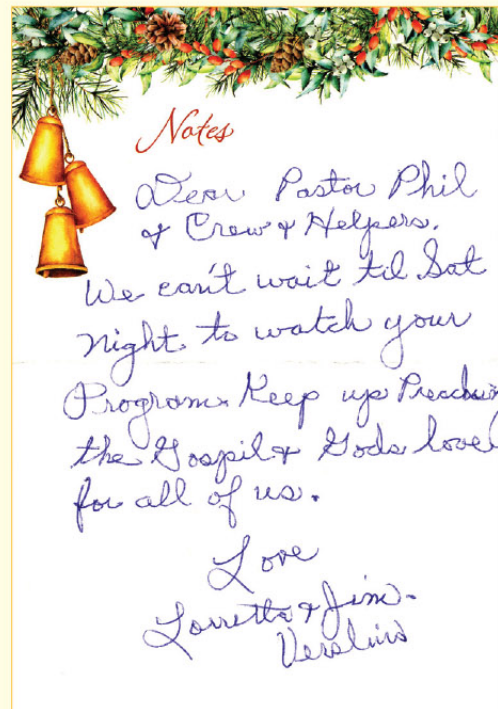 Notes
Dear Pastor Phil
& Crew & Helpers.
We can't wait til Sat
night to watch your
Program. Keep up Preachin
the Gospil & Gods love
for all of us.
Love
Lorretta & Jim.